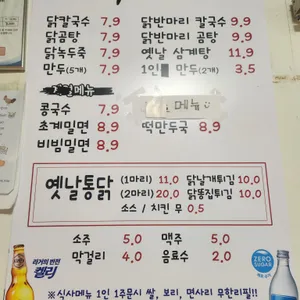 닭칼국수 7,9 닭반마리 칼국수 9,9
닭곰탕 7,9 닭반마리 곰탕 9,9
닭녹두죽 7,9 옛날 삼계탕 11,9
만두(5개) 7,9 1인 만두(2개) 3,5
메뉴 메뉴
콩국수 7,9
초계밀면 8,9 떡만두국 8,9
비빔밀면 8,9
옛날통닭 (1마리) 11,0 닭날개튀김 10,0
(2마리) 20,0 닭똥집튀김 10,0
소스 / 치킨 무 0,5
소주 5,0 맥주 5,0
막걸리 4,0 음료수 2,0
라거의 반전
켈리
ZERO
SUGAR
※식사메뉴 1인 1주문시 쌀, 보리, 면사리 무한리필!!